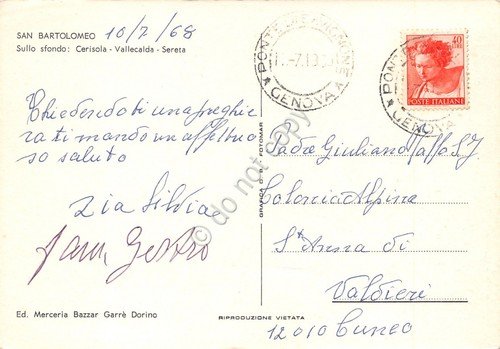 SAN BARTOLOMEO 10/7/68
Sullo sfondo: Cerisola - Vallecalda - Sereta
Chiedendoti una preghie
ra ti mando un affettuo
so saluto
zia Silvia
Ed. Merceria Bazzar Garrè Dorino
GRAFICA FOTOMAR
RIPRODUZIONE VIETATA
do not copy
GENOVA
40
POSTE ITALIANE
GENOVA
Padre Giuliano
Colonia Alpina
St Anna di
Valdieri
12010 Cuneo